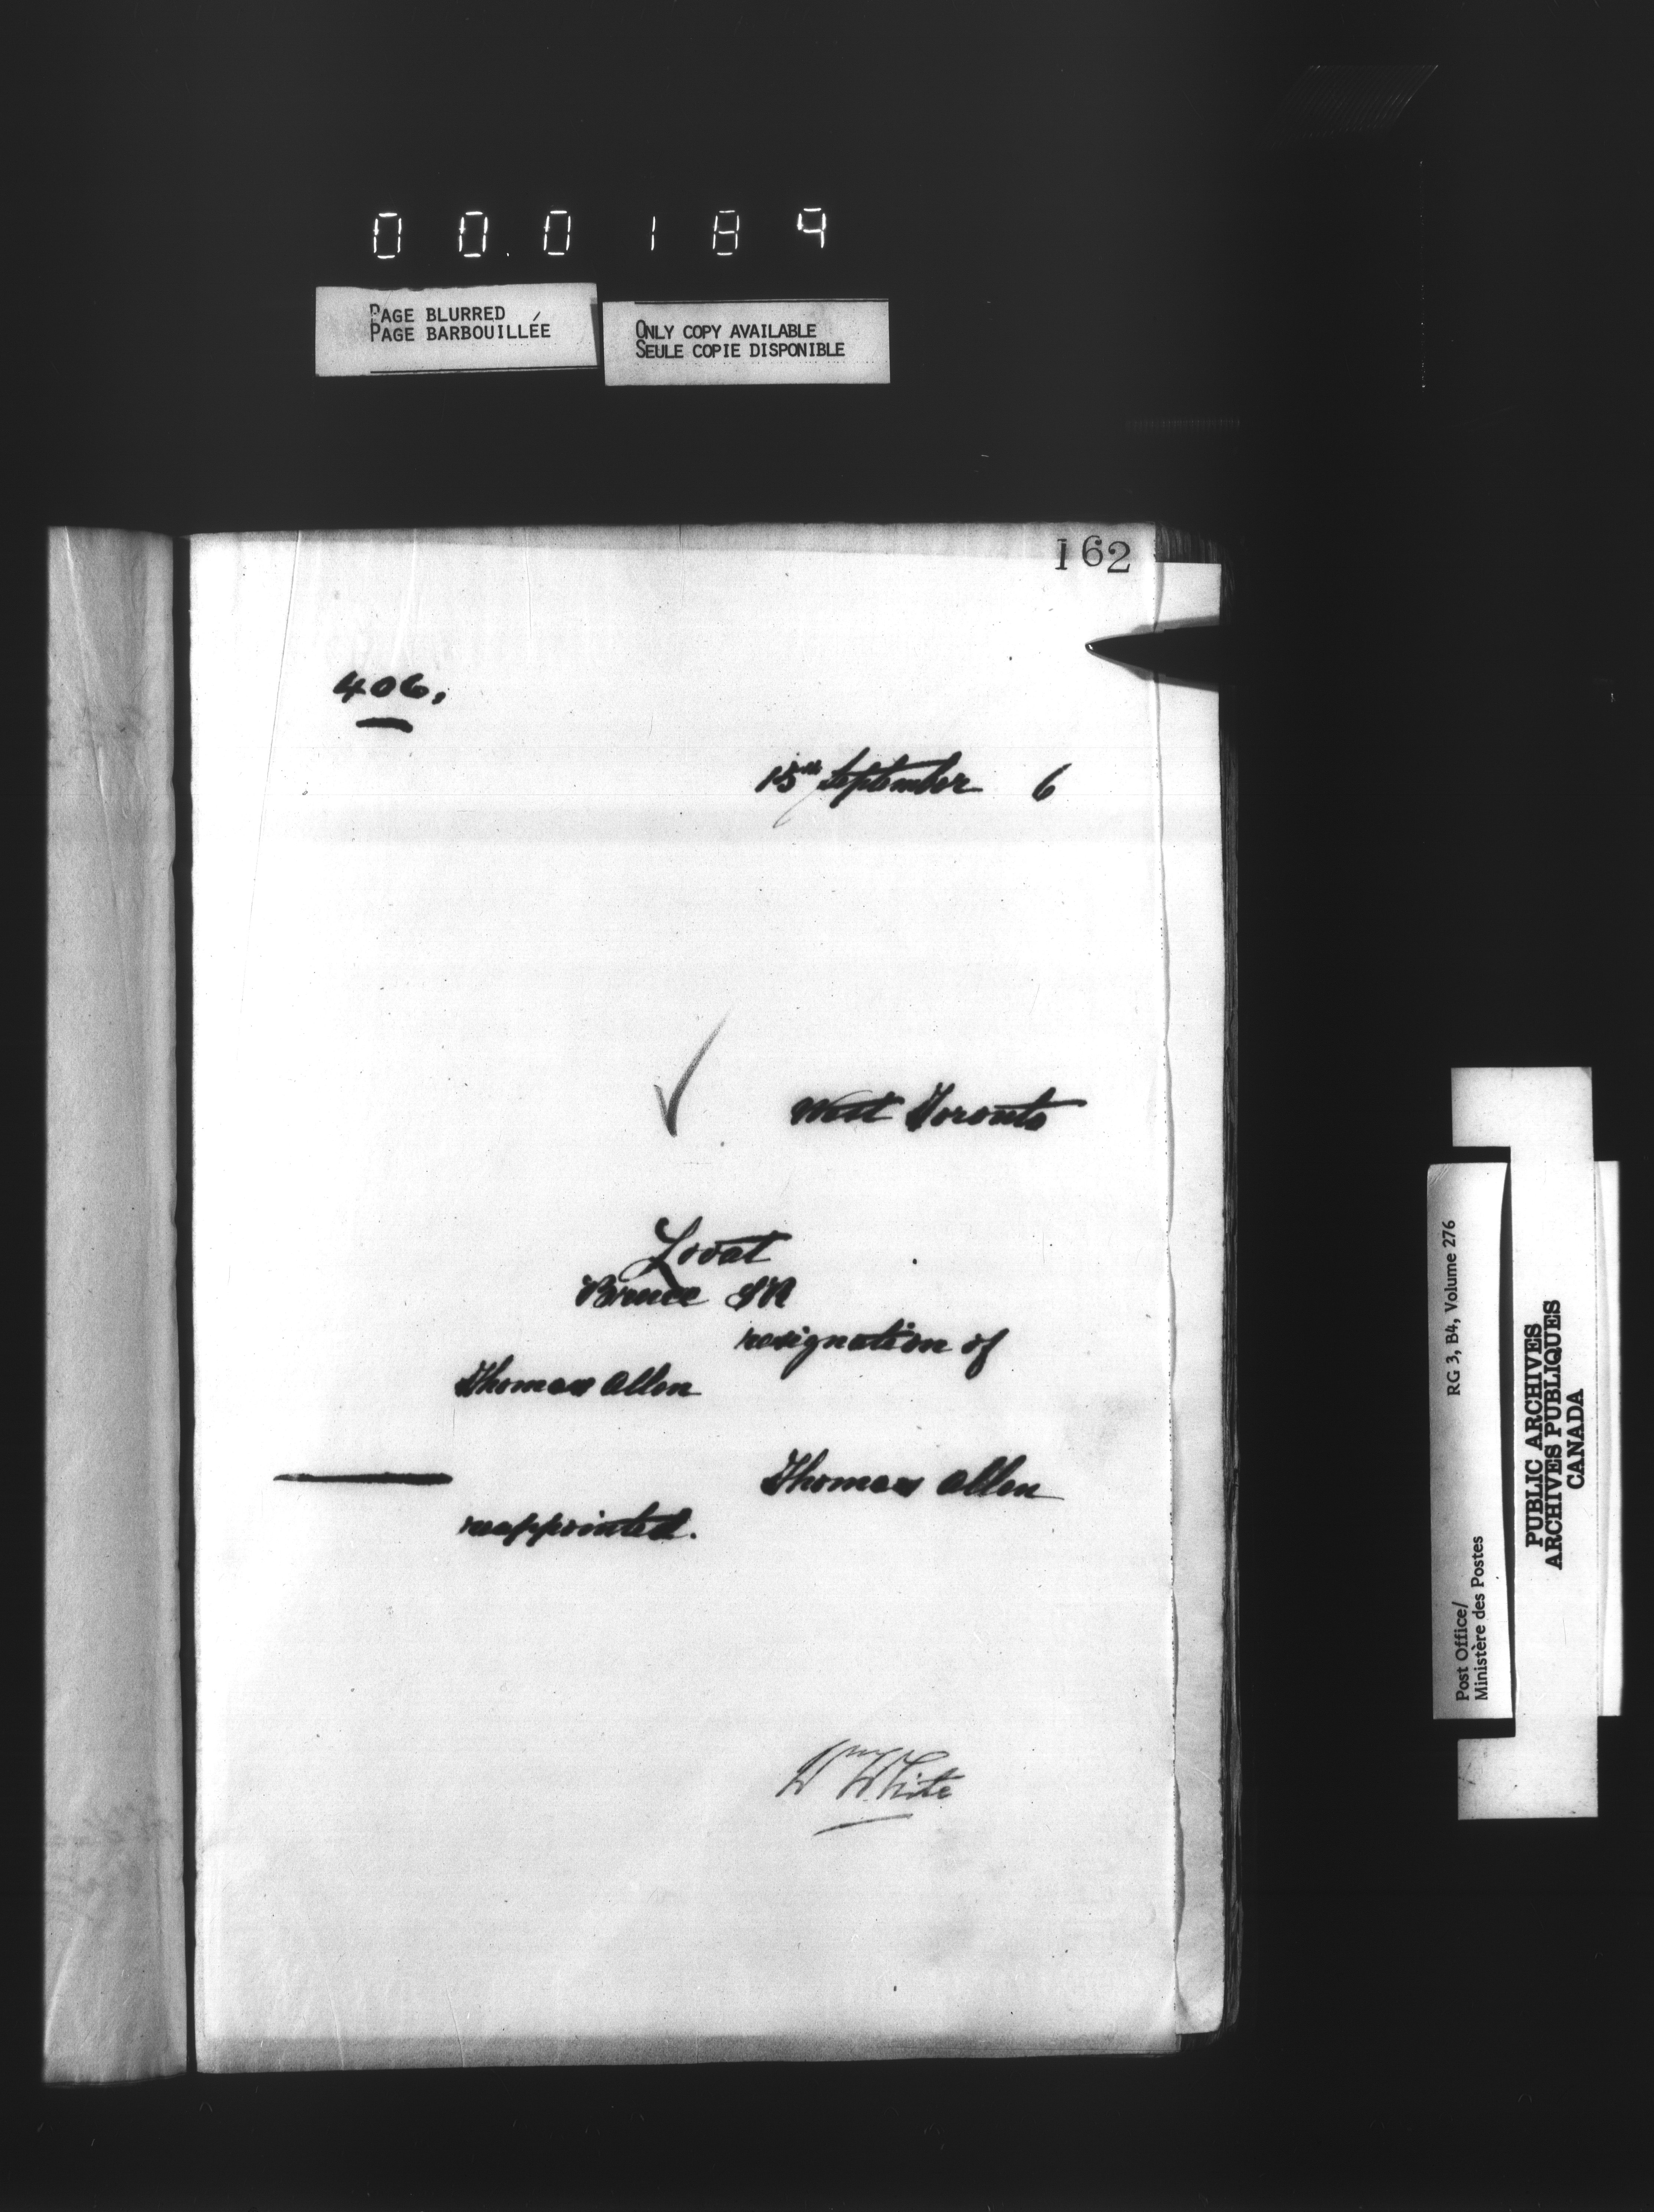 000189
PAGE BLURRED
PAGE BARBOUILLÉE
ONLY COPY AVAILABLE
SEULE COPIE DISPONIBLE
162
406,
15th September 6
West Toronto
Lovat
Bruce SR
resignation of
Thomas Allen
Thomas Allen
reappointed.
Wm White
RG 3, B4, Volume 276
Post Office/
Ministère des Postes
PUBLIC ARCHIVES
ARCHIVES PUBLIQUES
CANADA